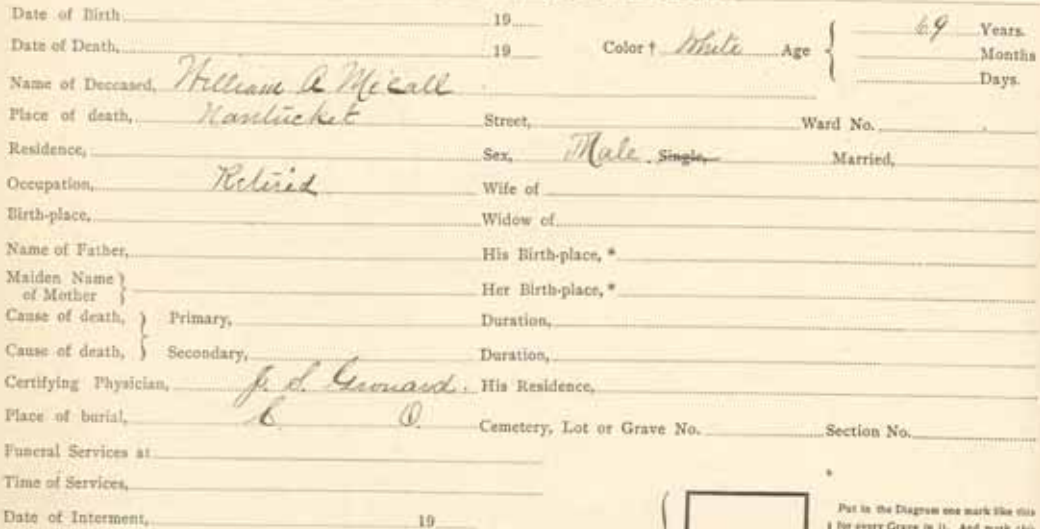 Date of Birth 19
Date of Death, 19 Color † White Age { 69 Years.
Months
Days.
Name of Deceased, William A McCall
Place of death, Nantucket Street, Ward No.
Residence, Sex, Male Single, Married,
Occupation, Retired Wife of
Birth-place, Widow of
Name of Father, His Birth-place, *
Maiden Name of Mother } Her Birth-place, *
Cause of death, } Primary, Duration,
Cause of death, } Secondary, Duration,
Certifying Physician, J. S. Grouard. His Residence,
Place of burial, O. Cemetery, Lot or Grave No. Section No.
Funeral Services at
Time of Services, *
Date of Interment, 19 Put in the Diagram one mark like this
for every Grave in it. And mark this